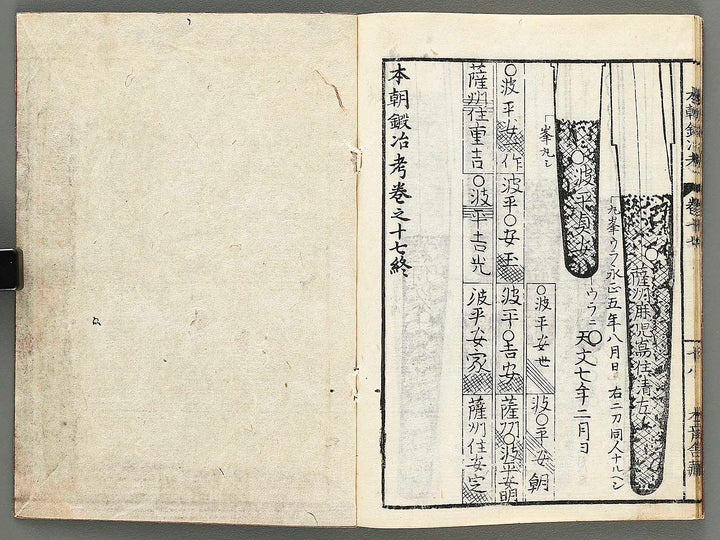 本朝鍛冶考 巻十七
十八
薩州鹿児嶌住清左
「九峯ウラ永正五年八月日 右二刀同人ナルベシ
波平貞安
ウラニ
天文七年二月日
「峯丸シ
○波平安世
波○平安朝
○波平安作
波平○安王
波平○吉安
薩州○波平安明
薩州住重吉
○波平吉光
波平安家
薩州住安定
本朝鍛冶考巻之十七終